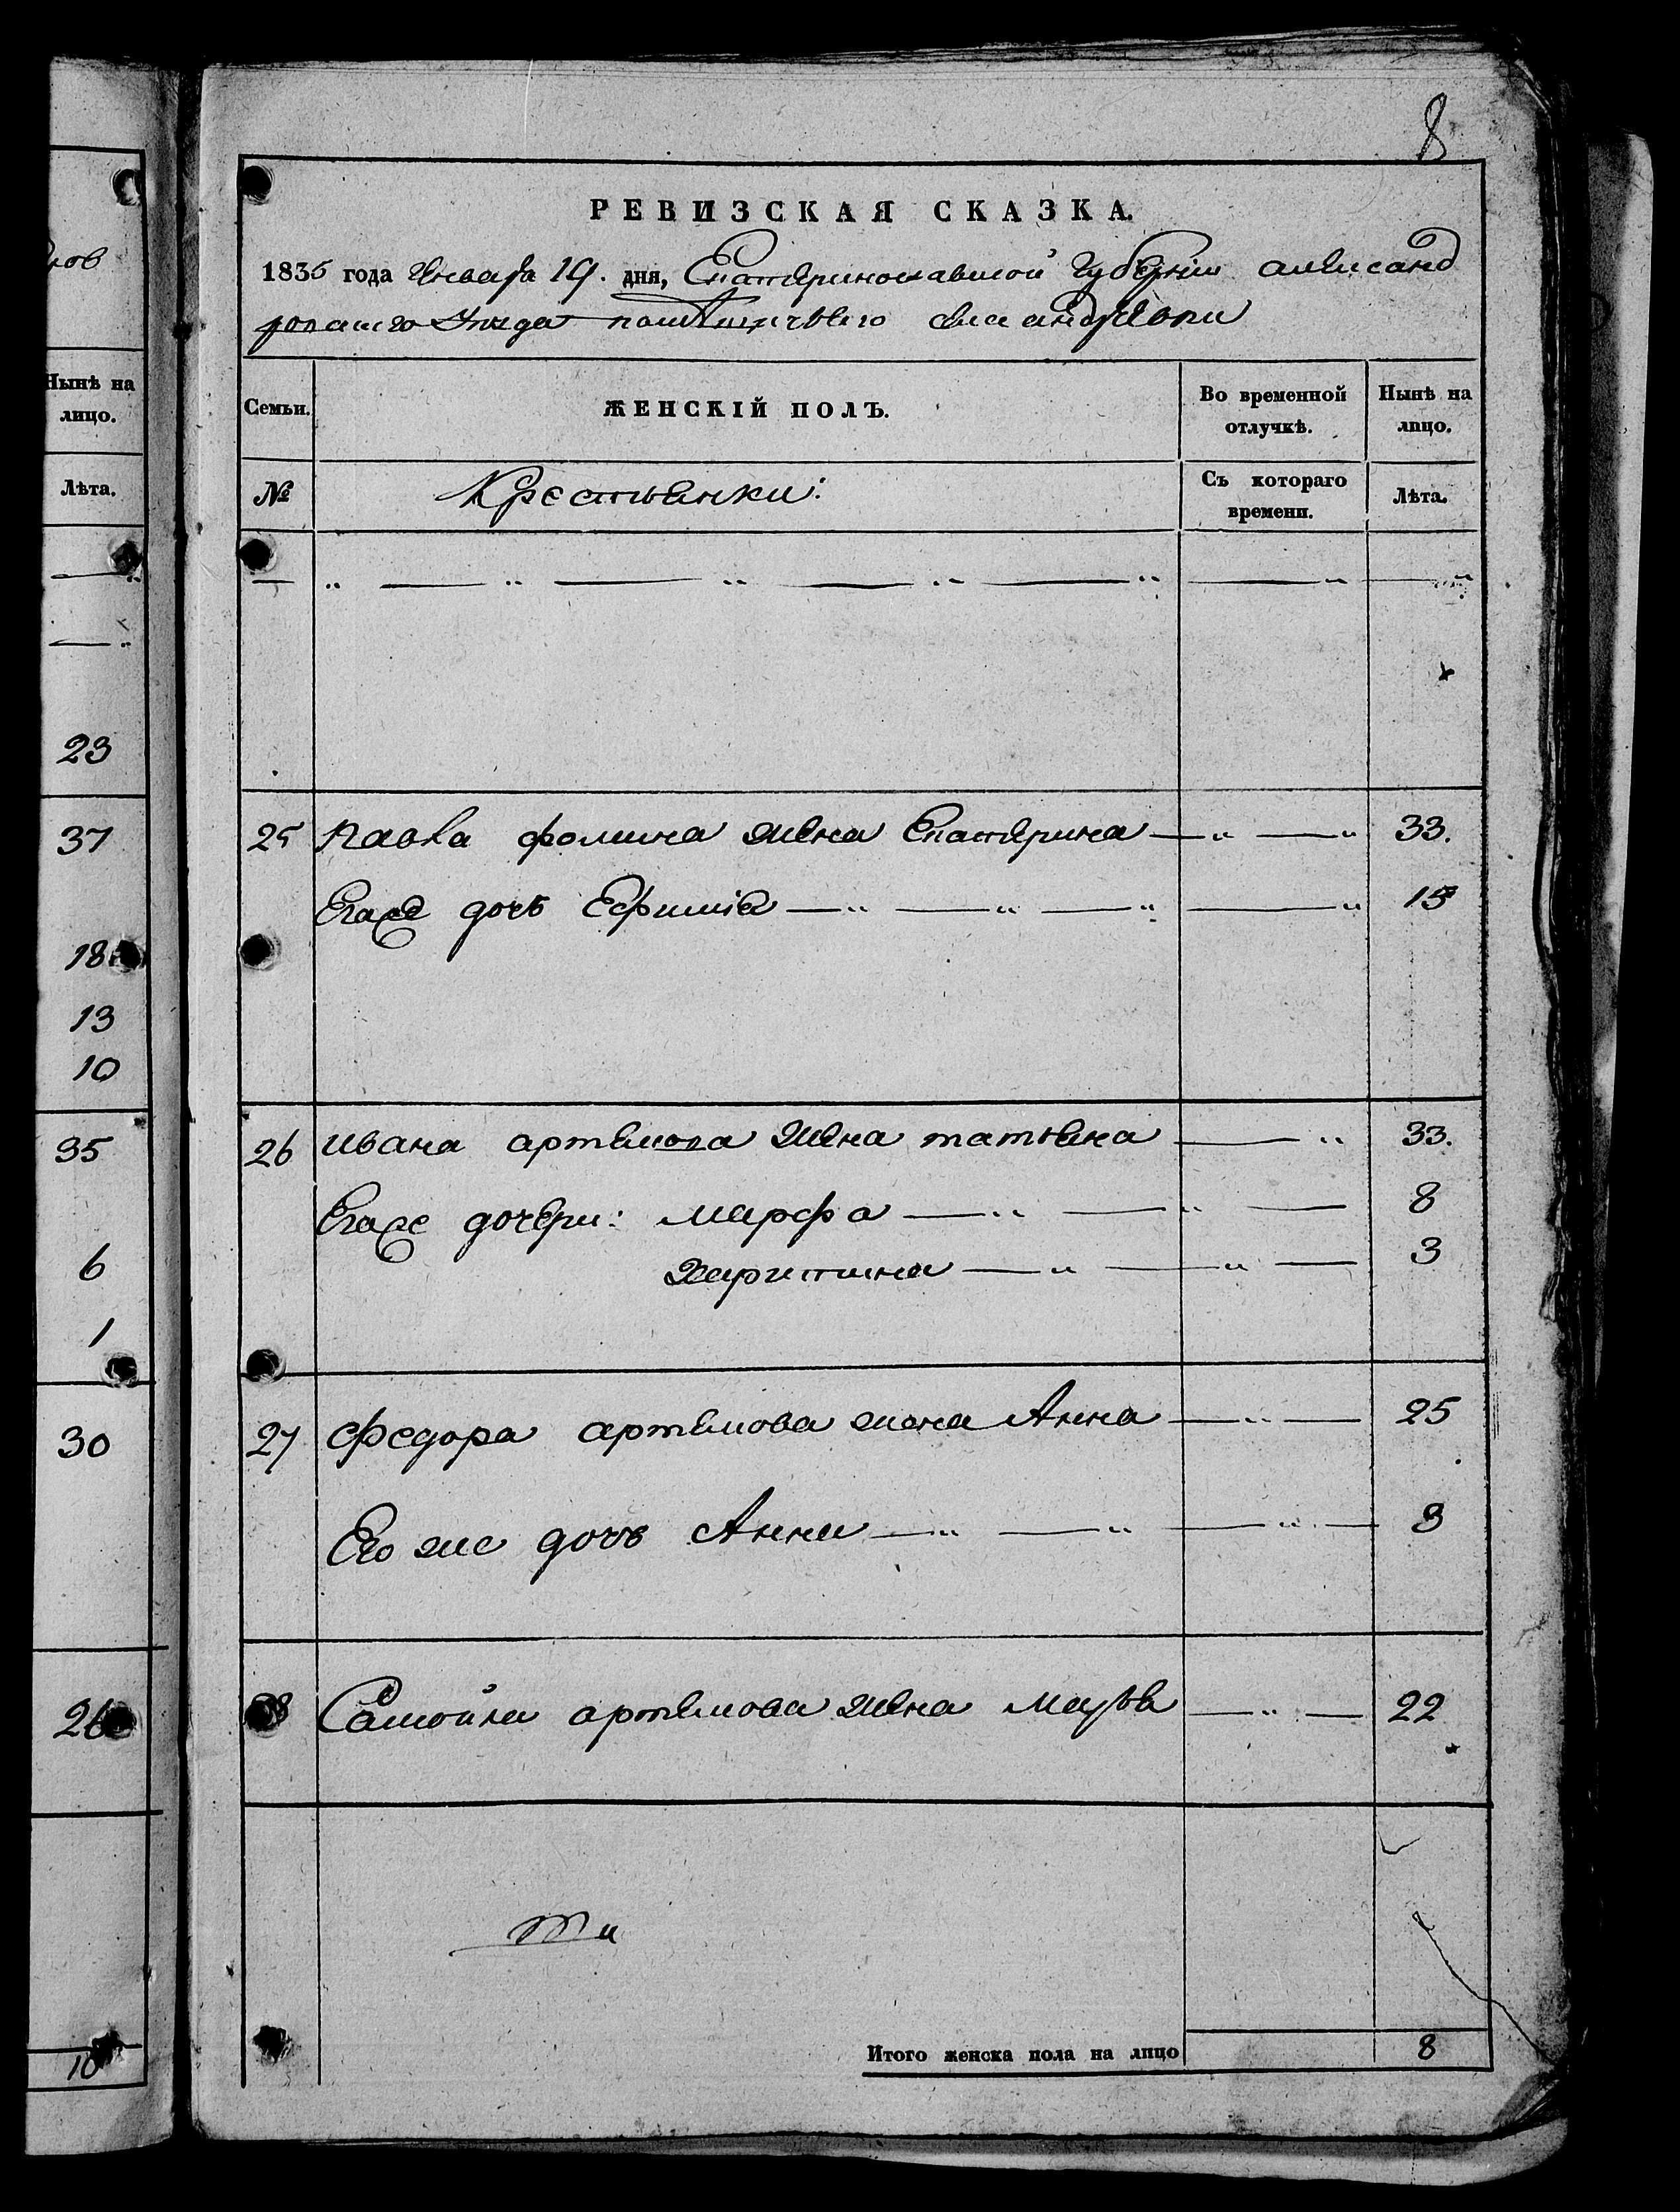 8
РЕВИЗСКАЯ СКАЗКА.
1835 года Января 19. дня, Екатеринославской Губерніи александ
ровскаго Уезда
Семьи. ЖЕНСКІЙ ПОЛЪ. Во временной отлучкѣ. Нынѣ на лицо.
№ Крестьянки: Съ котораго времени. Лѣта.
25 Павла фомина жена Екатерина 33.
Егоже дочь Ефимія 15
26 Ивана артемова жена татьяна 33.
Егоже дочери: Марфа 8
Харитина 3
27 Федора артемова жена Анна 25
Его же дочь Анна 3
28 Самойла артемова жена Марья 22
Итого женска пола на лицо 8
нов
Нынѣ на
лицо.
Лѣта.
23
37
18
13
10
35
6
1
30
26
10